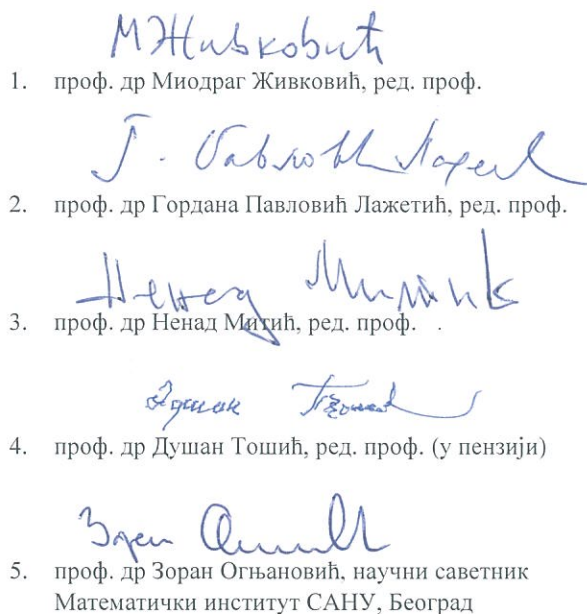 МЖивковић
1. проф. др Миодраг Живковић, ред. проф.
Г.
2. проф. др Гордана Павловић Лажетић, ред. проф.
Ненад Митић
3. проф. др Ненад Митић, ред. проф.
4. проф. др Душан Тошић, ред. проф. (у пензији)
5. проф. др Зоран Огњановић, научни саветник
Математички институт САНУ, Београд